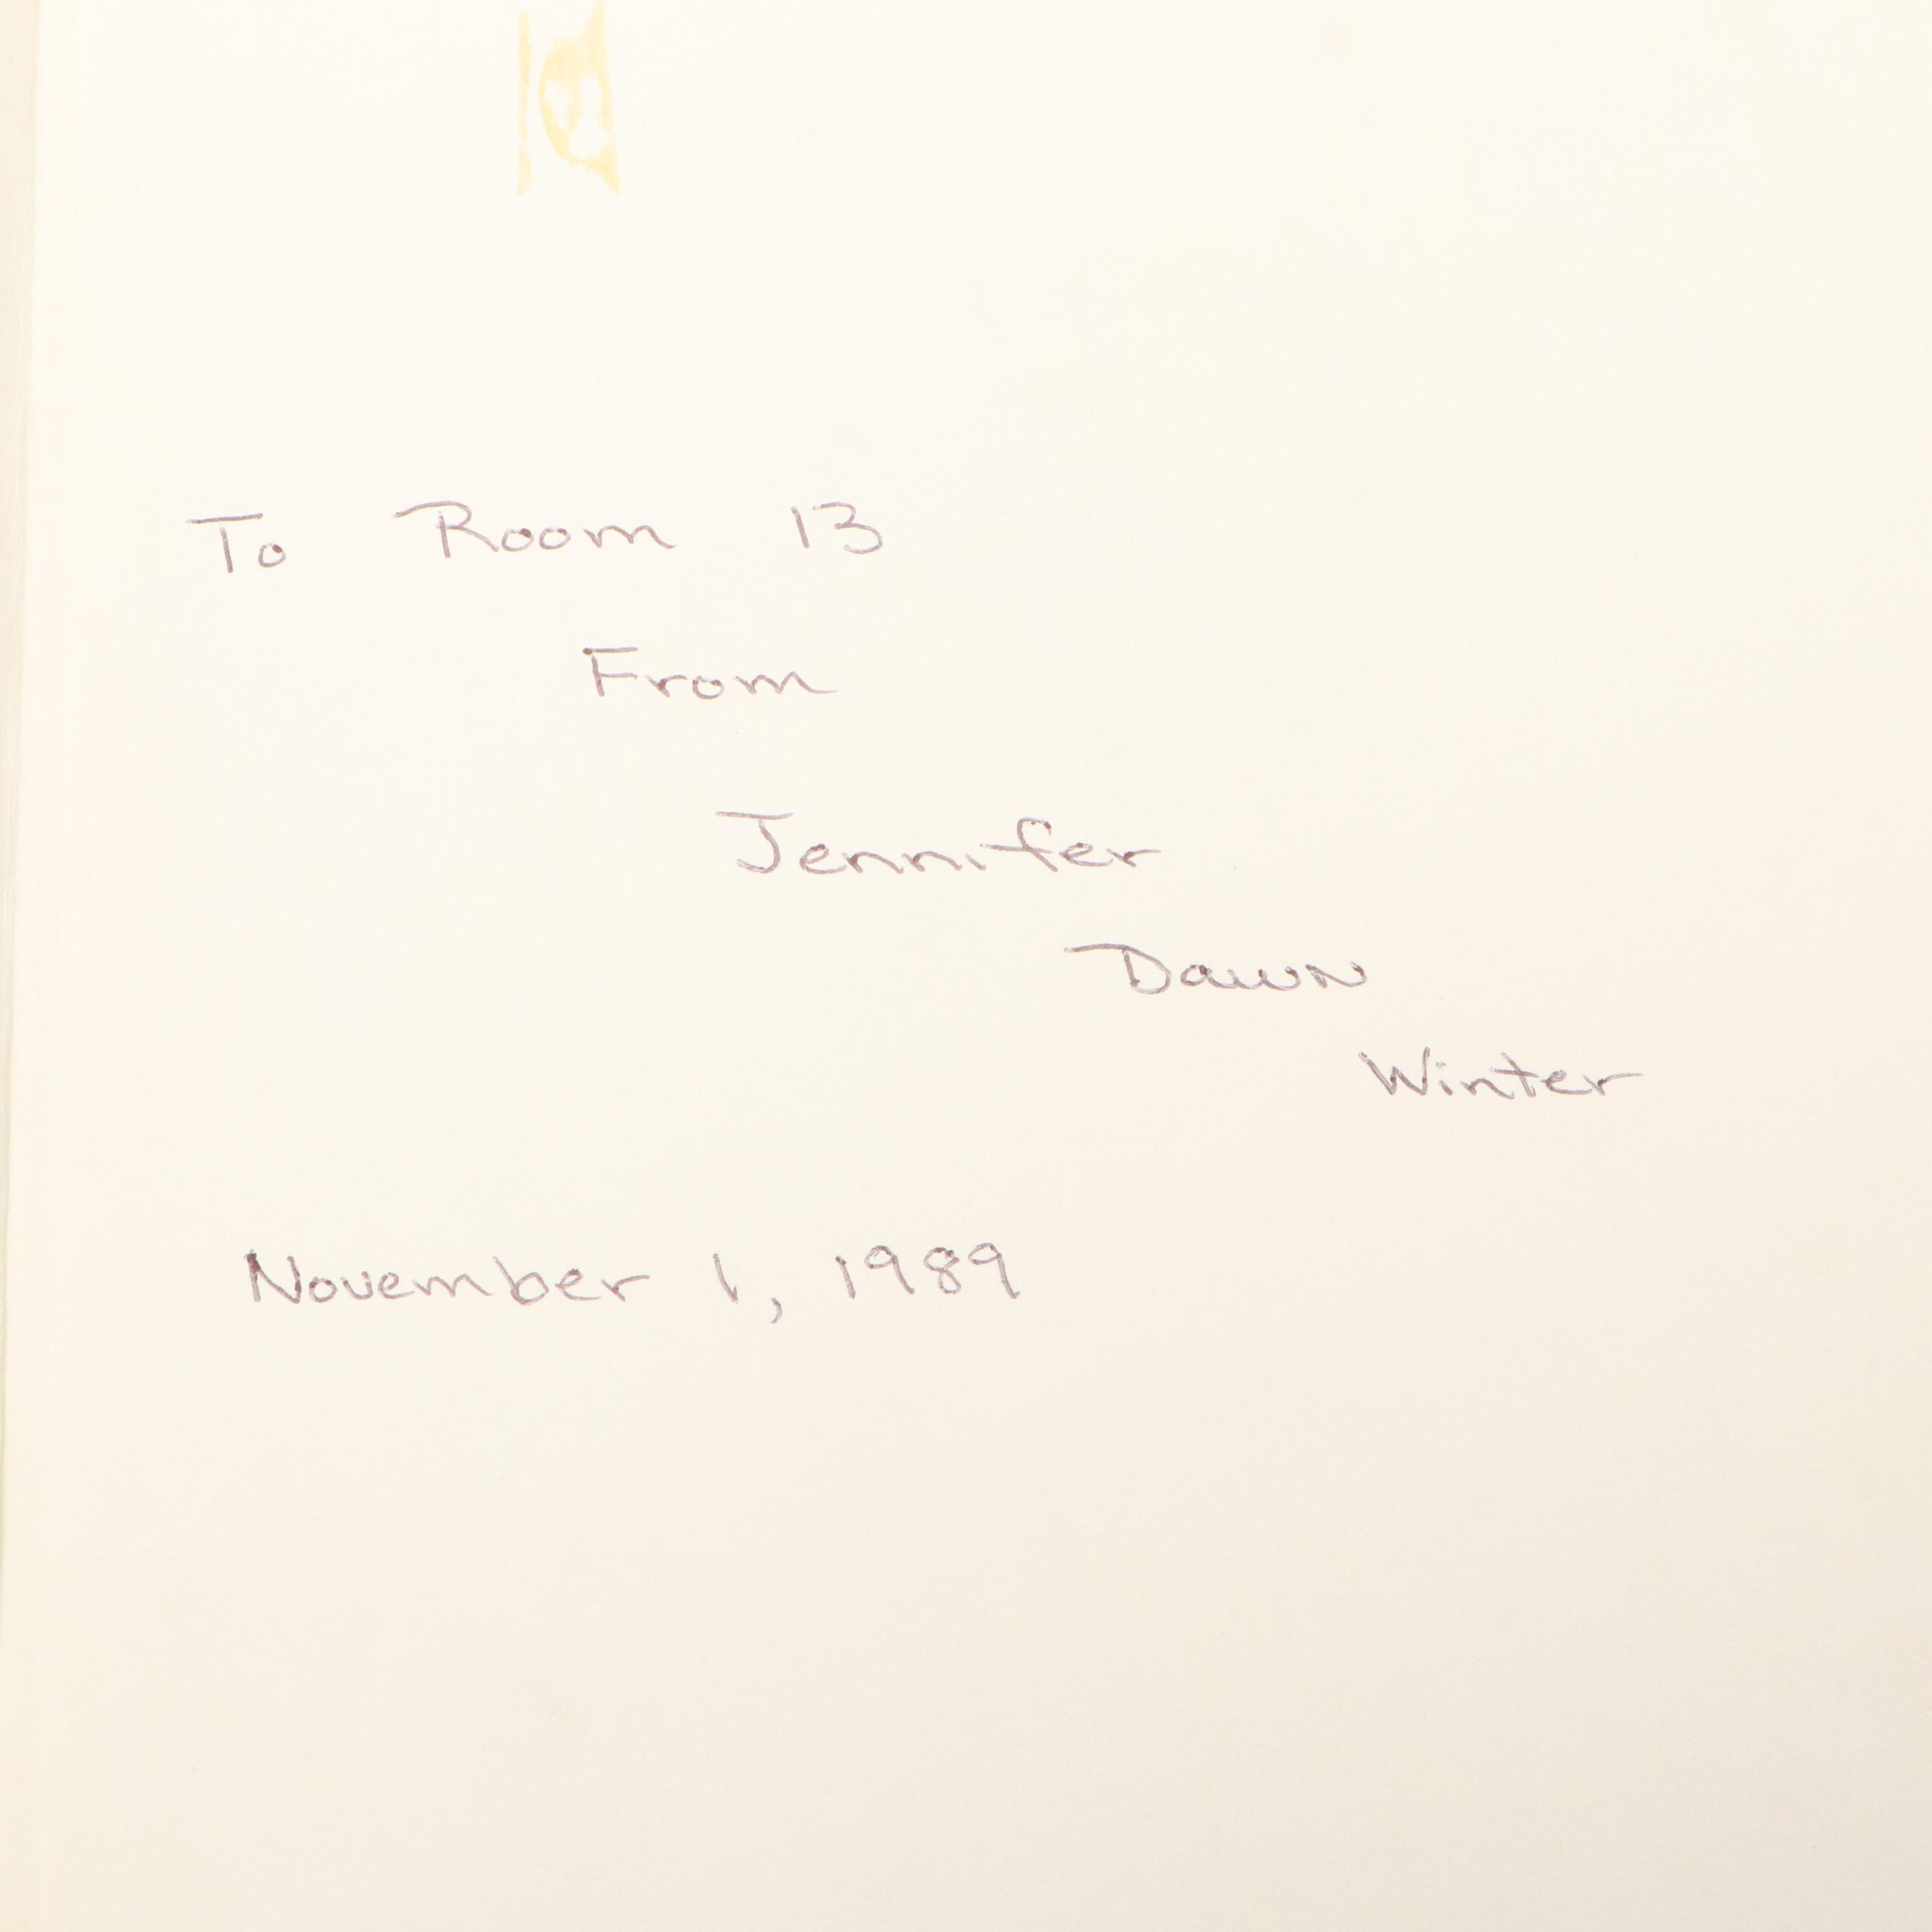 To Room 13
From
Jennifer
Dawn
Winter
November 1, 1989